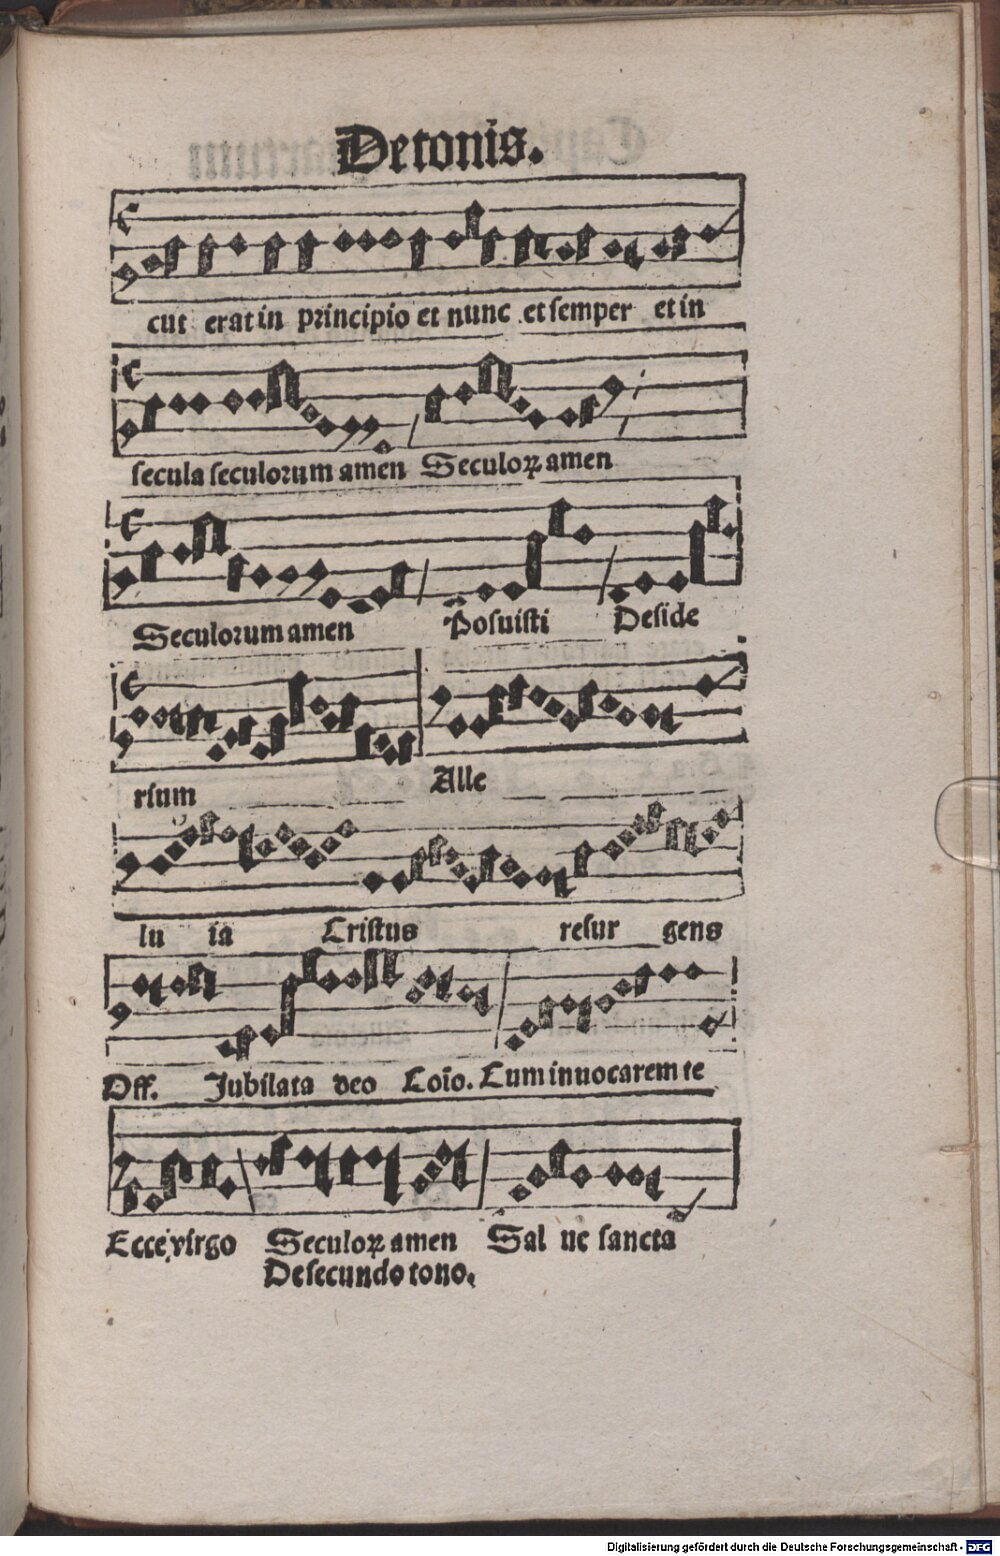 Detonis.
cut erat in principio et nunc et semper et in
secula seculorum amen Seculoꝝ amen
Seculorum amen Posuisti Deside
rium Alle
lu ia Cristus resur gens
Off. Jubilata deo Coīo. Cum inuocarem te
Ecce virgo Seculoꝝ amen Sal ue sancta
De secundo tono.
Digitalisierung gefördert durch die Deutsche Forschungsgemeinschaft - DFG